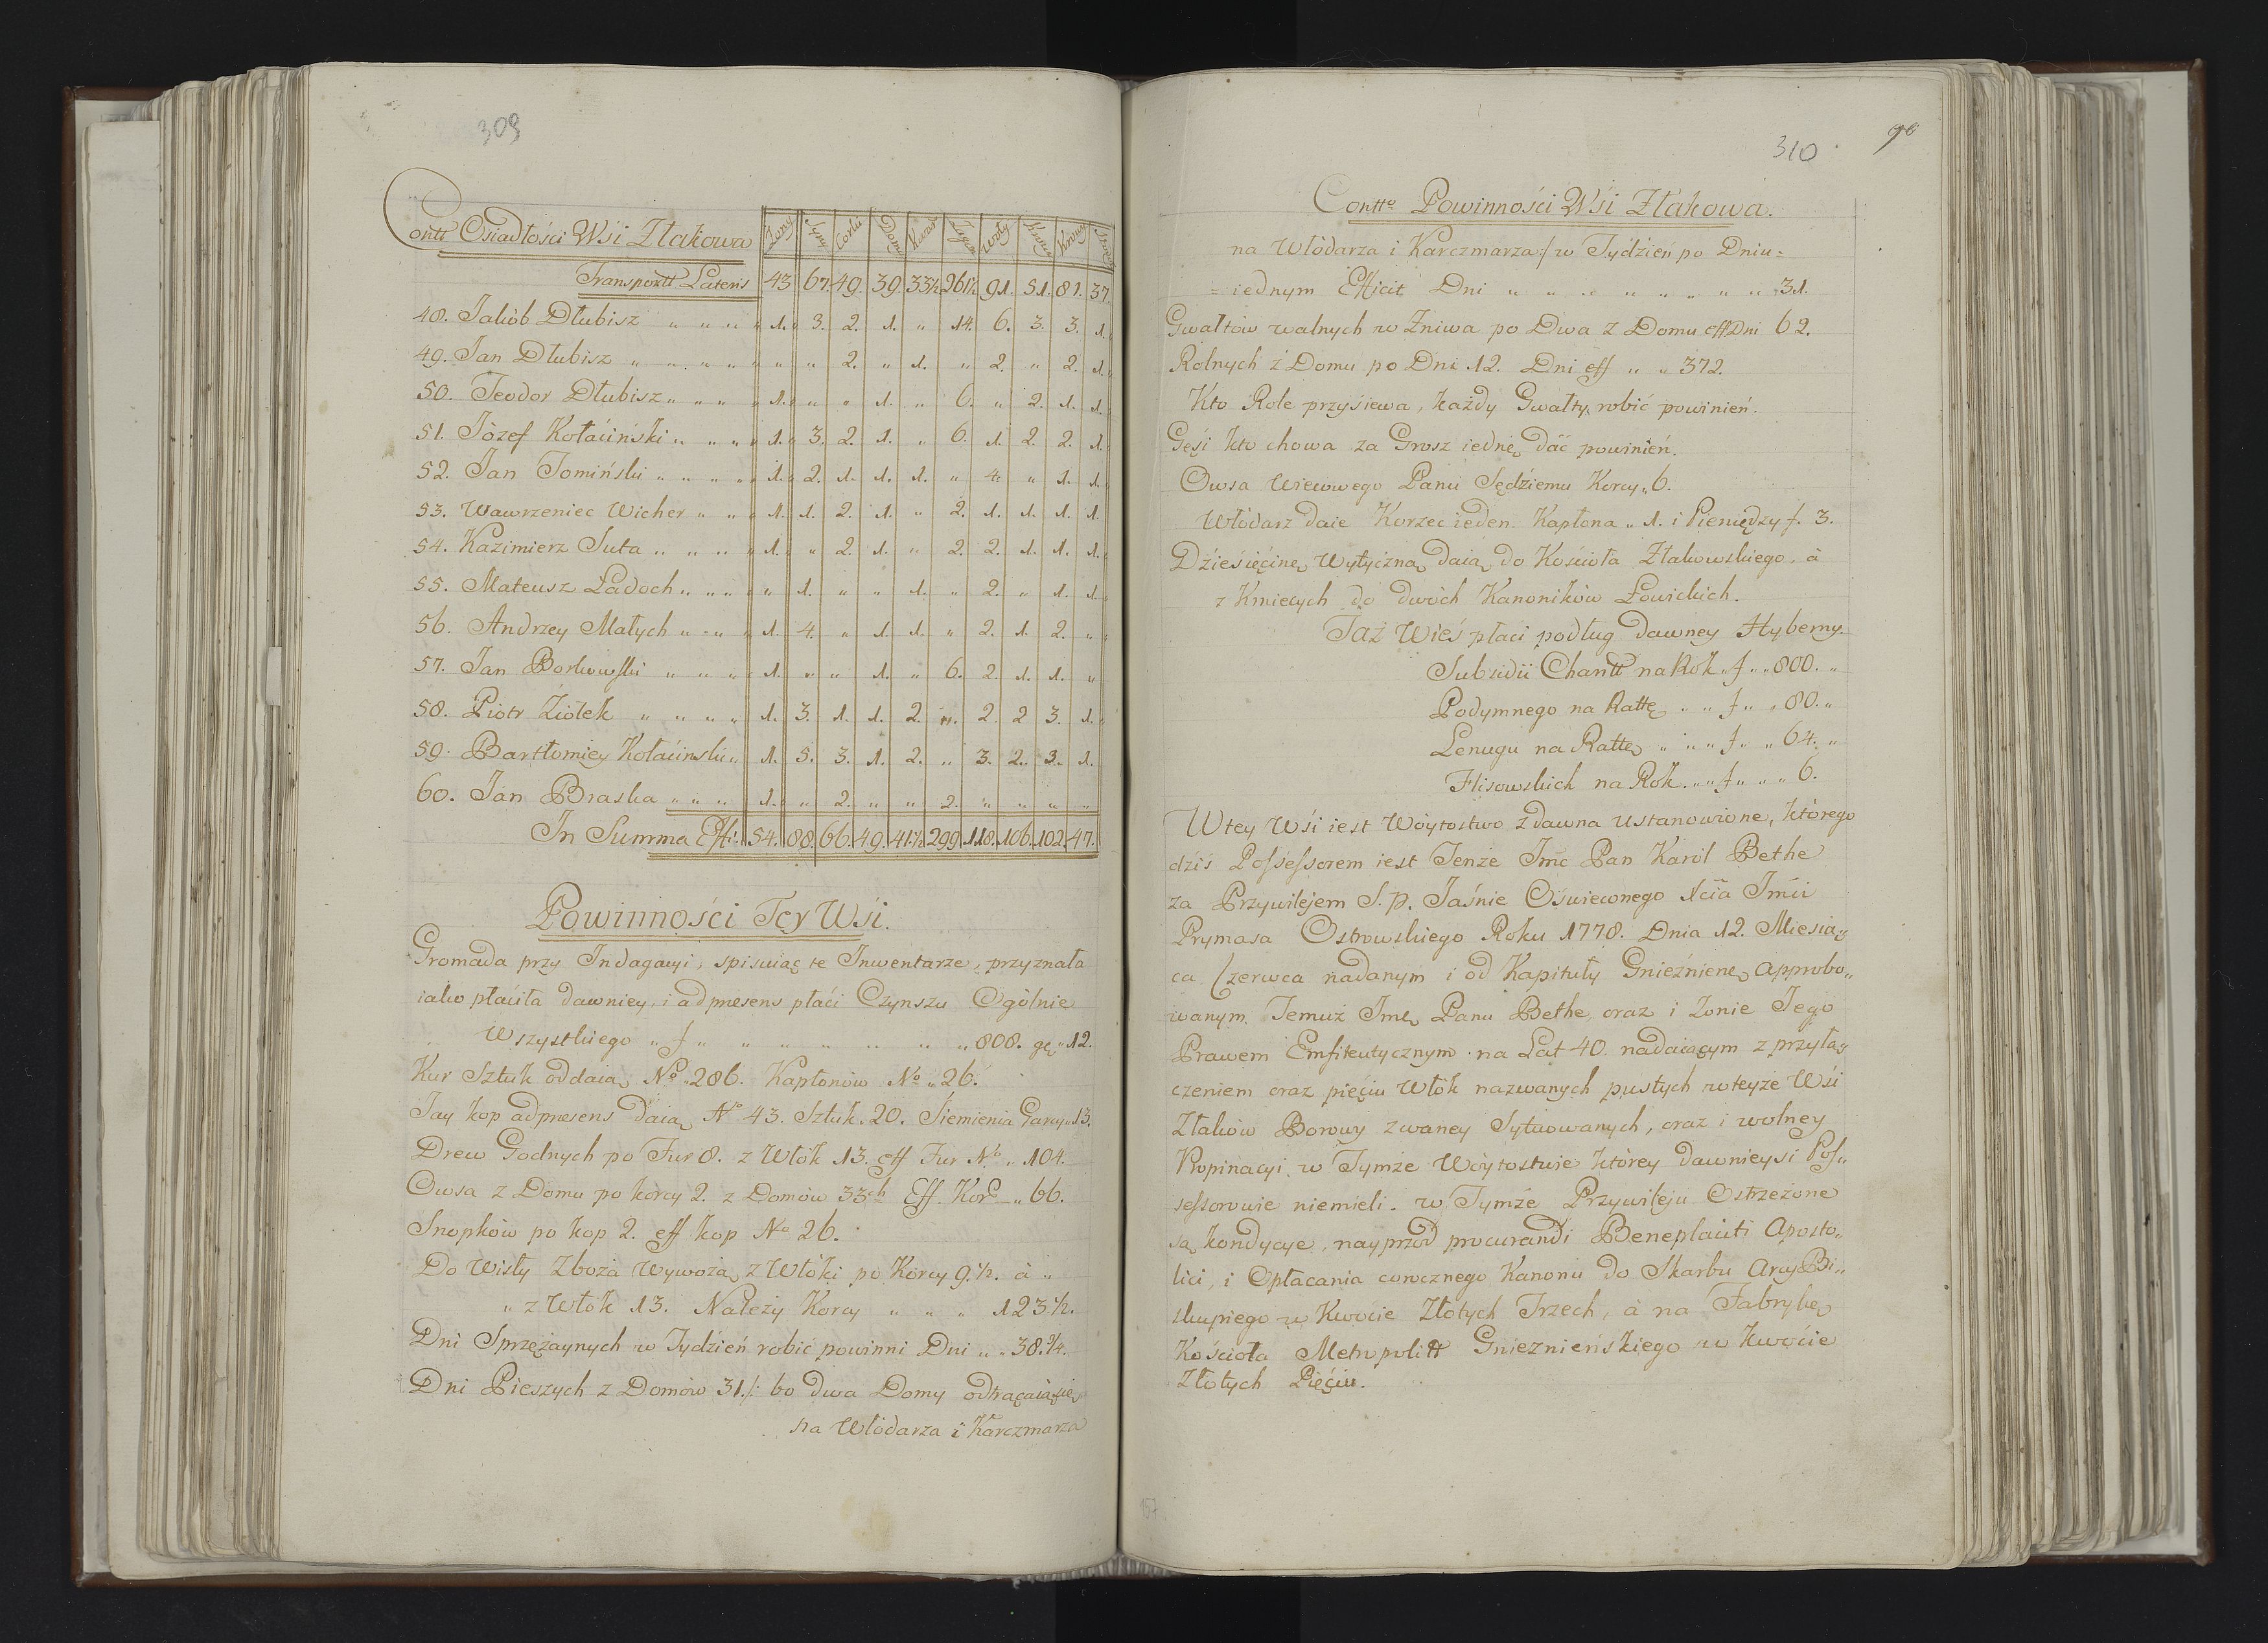 309
Contt Osiadłości Wsi Złakowa Żony Syny Corki Domy Woły Krowy
Transportt Lateris 43. 67. 49. 39. 33½ 261½ 91. 51. 81. 37.
48. Jakób Dłubisz " " " " 1. 3. 2. 1. " 14. 6. 3. 3. 1.
49. Jan Dłubisz " " " " " " 2. " 1. " 2. " 2. 1.
50. Teodor Dłubisz " " " " 1. " " 1. " 6. " 2. 1. 1.
51. Józef Kołaciński " " " " 1. 3. 2. 1. " 6. 1. 2. 2. 1.
52. Jan Tomiński " " " " 1. 2. 1. 1. 1. " 4. " 1. 1.
53. Wawrzeniec Wicher " " " 1. 1. 2. 1. " 2. 1. 1. 1. 1.
54. Kazimierz Suta " " " " 1. " 2. 1. " 2. 2. 1. 1. 1.
55. Mateusz Ładoch " " " " " 1. " " 1. " 2. " 1. 1.
56. Andrzey Małych " " " " 1. 4. " 1. 1. " 2. 1. 2. "
57. Jan Borkowski " " " " 1. " " 1. " 6. 2. 1. 1. "
58. Piotr Ziółek " " " " 1. 3. 1. 1. 2. " 2. 2 3. 1.
59. Bartłomiey Kołaciński " 1. 5. 3. 1. 2. " 3. 2. 3. 1.
60. Jan Braska " " " 1. " 2. " " 2. " " " "
In Summa Effi: 54. 88. 66. 49. 41½ 299 118. 106. 102. 47.
Powinności Tey Wsi.
Gromada przy Indagacyi, spisuiąc te Inwentarze, przyznała
iako płaciła dawniey, i adpresens płaci Czynszu Ogólnie
Wszystkiego " f " " " " " " " 808. gr " 12.
Kur Sztuk oddaią No " 286. Kapłonów No " 26.
Jay kop adpresens daią No 43. Sztuk. 20. Siemienia Garcy " 13.
Drew Godnych po Fur 8. z Włók 13. eff Fur No " 104.
Owsa z Domu po korcy 2. z Domów 33ch Eff. Korc " 66.
Snopków po kop 2. eff kop No 26.
Do Wisły Zboża Wywożą z Włóki po Korcy 9½. à "
" z Włók 13. Należy Korcy " " " 123½.
Dni Sprzężaynych w Tydzień robić powinni Dni " " 38.¾.
Dni Pieszych z Domów 31./: bo dwa Domy odtrącaią się
na Włódarza i Karczmarza
310. 90
Contto Powinności Wsi Złakowa.
na Włódarza i Karczmarza:/ w Tydzień po Dniu =
= iednym Efficit Dni " " " " " " " " 31.
Gwałtów walnych w Żniwa po Dwa z Domu eff Dni 62.
Rolnych z Domu po Dni 12. Dni eff " " 372.
Kto Role przysiewa, każdy Gwałty robić powinień.
Gęsi kto chowa za Grosz iednę dać powinień.
Owsa Wiecowego Panu Sędziemu Korcy " 6.
Włódarz daie Korzec ieden. Kapłona " 1. i Pieniędzy f. 3.
Dziesięcinę Wytyczną daią do Kościoła Złakowskiego, à
z Kmiecych do dwóch Kanoników Łowickich.
Taż Wieś płaci podług dawney Hyberny.
Subsidii Charitt na Rok " f " " 800. "
Podymnego na Rattę " " f " " 80. "
Lenugu na Rattę " " " f " " 64. "
Flisowskich na Rok. " " f " " " 6.
W tey Wsi iest Wóytostwo zdawna ustanowione, którego
dziś Possessorem iest Tenże Jmć Pan Karól Bethe
za Przywilejem S. p. Jaśnie Oświeconego Xcia Jmći
Prymasa Ostrowskiego Roku 1778. Dnia 12. Miesią„
ca Czerwca nadanym i od Kapituły Gnieźniene approbo„
wanym. Temuż Jmć Panu Bethe, oraz i Żonie Jego
Prawem Emfiteutycznym na Lat 40. nadaiącym z przyłą„
czeniem oraz pięciu Włók nazwanych pustych w teyże Wsi
Złaków Borowy zwaney Sytuowanych, oraz i wolney
Propinacyi. w Tymże Wóytostwie którey dawnieysi Pos„
sessorowie niemieli. w Tymże Przywileju Ostrzeżone
są kondycye, nayprzód procurandi Beneplaciti Aposto„
lici, i Opłacania corocznego Kanonu do Skarbu ArcyBi„
skupiego w Kwocie Złotych Trzech, à na Fabrykę
Kościoła Metropolitt Gnieznieńskiego w kwocie
Złotych Pięciu.
157